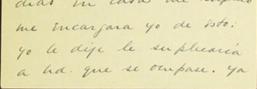 dias en casa me
me encargara yo de esto.
yo le dije le suplicaria
a Ud. que se ocupase. Ya